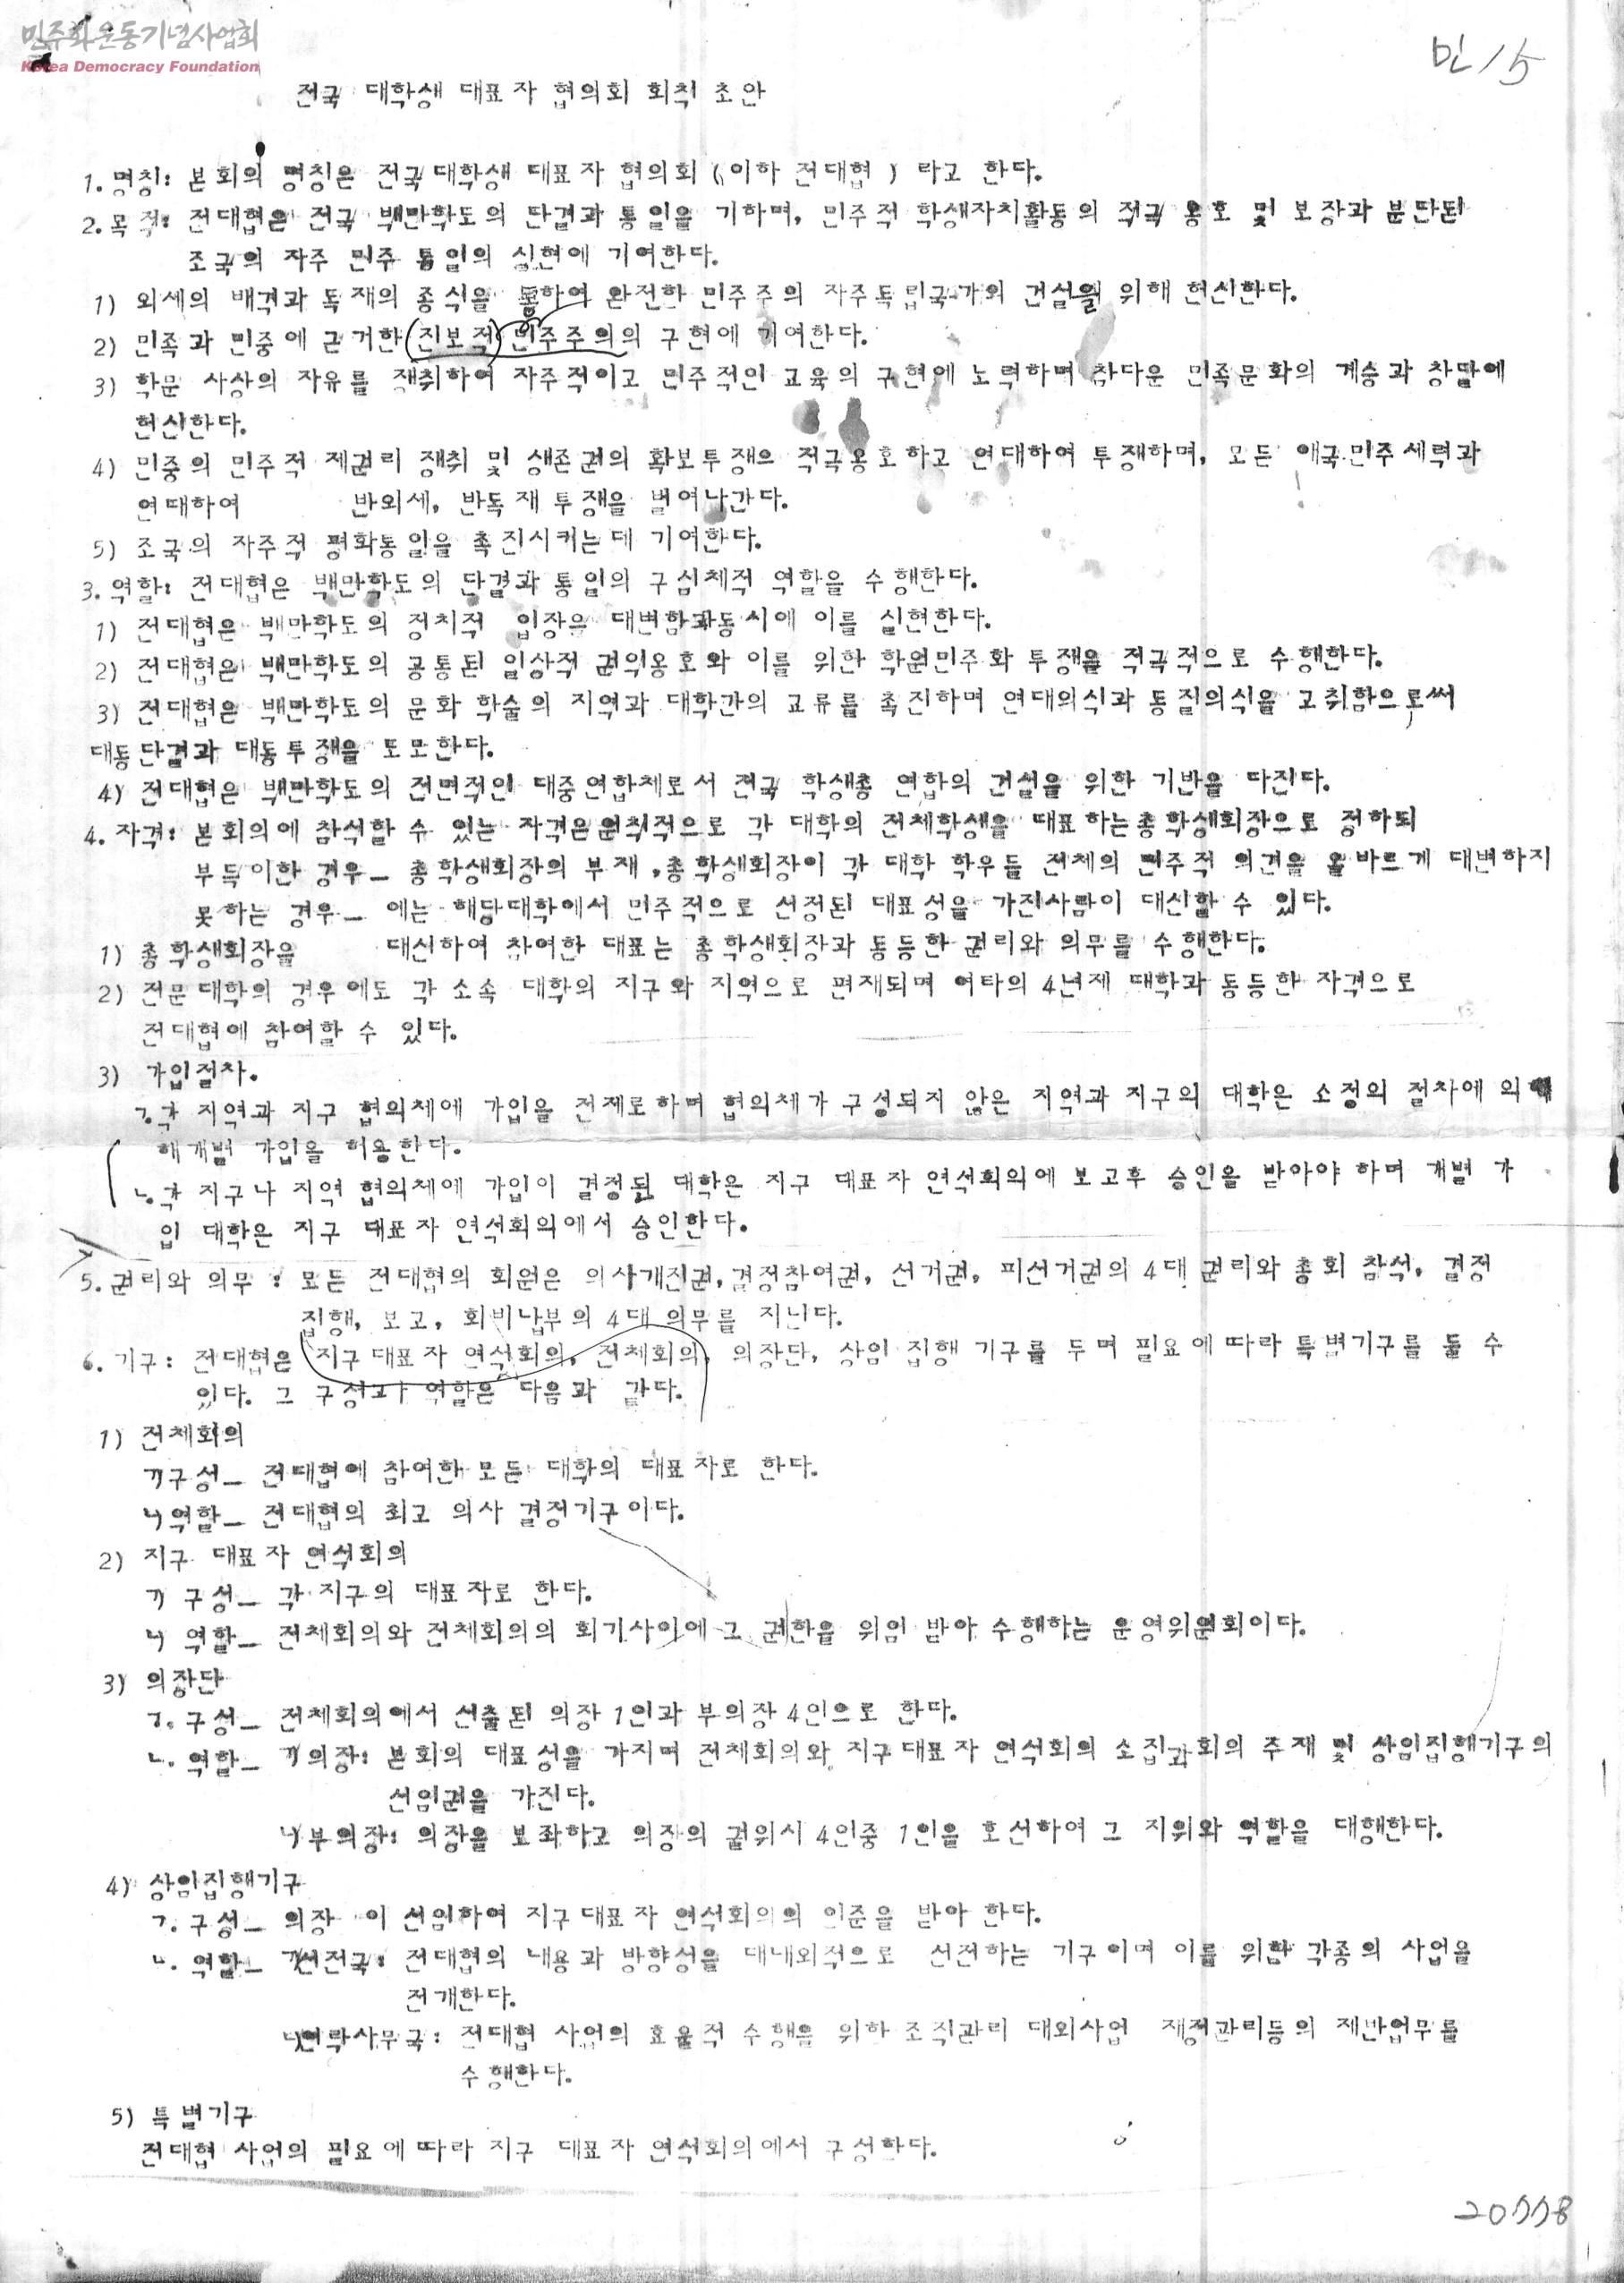 민주화운동기념사업회
Korea Democracy Foundation
민 15
전국 대학생 대표자 협의회 회칙 초안
1. 명칭: 본회의 명칭은 전국대학생 대표자 협의회 (이하 전대협) 라고 한다.
2. 목적: 전대협은 전국 백만학도의 단결과 통일을 기하며, 민주적 학생자치활동의 적극 옹호 및 보장과 분단된
조국의 자주 민주 통일의 실현에 기여한다.
1) 외세의 배격과 독재의 종식을 통하여 완전한 민주주의 자주독립국가의 건설을 위해 헌신한다.
2) 민족과 민중에 근거한 (진보적) 민주주의의 구현에 기여한다.
3) 학문 사상의 자유를 쟁취하여 자주적이고 민주적인 교육의 구현에 노력하며 참다운 민족문화의 계승과 창달에
헌신한다.
4) 민중의 민주적 제권리 쟁취 및 생존권의 확보투쟁으 적극옹호하고 연대하여 투쟁하며, 모든 애국민주세력과
연대하여 반외세, 반독재 투쟁을 벌여나간다.
5) 조국의 자주적 평화통일을 촉진시키는데 기여한다.
3. 역할: 전대협은 백만학도의 단결과 통일의 구심체적 역할을 수행한다.
1) 전대협은 백만학도의 정치적 입장을 대변함과동시에 이를 실현한다.
2) 전대협은 백만학도의 공통된 일상적 권익옹호와 이를 위한 학원민주화 투쟁을 적극적으로 수행한다.
3) 전대협은 백만학도의 문화 학술의 지역과 대학간의 교류를 촉진하며 연대의식과 동질의식을 고취함으로써
대동단결과 대동투쟁을 도모한다.
4) 전대협은 백만학도의 전면적인 대중연합체로서 전국 학생총 연합의 건설을 위한 기반을 다진다.
4. 자격: 본회의에 참석할 수 있는 자격은원칙적으로 각 대학의 전체학생을 대표하는총학생회장으로 정하되
부득이한 경우_ 총학생회장의 부재, 총학생회장이 각 대학 학우들 전체의 민주적 의견을 올바르게 대변하지
못하는 경우_ 에는 해당대학에서 민주적으로 선정된 대표성을 가진사람이 대신할 수 있다.
1) 총학생회장을 대신하여 참여한 대표는 총학생회장과 동등한 권리와 의무를 수행한다.
2) 전문대학의 경우에도 각 소속 대학의 지구와 지역으로 편재되며 여타의 4년제 대학과 동등한 자격으로
전대협에 참여할 수 있다.
3) 가입절차.
ㄱ.각 지역과 지구 협의체에 가입을 전제로하며 협의체가 구성되지 않은 지역과 지구의 대학은 소정의 절차에 의
해개별 가입을 허용한다.
ㄴ.각 지구나 지역 협의체에 가입이 결정된 대학은 지구 대표자 연석회의에 보고후 승인을 받아야 하며 개별 가
입 대학은 지구 대표자 연석회의에서 승인한다.
5. 권리와 의무 : 모든 전대협의 회원은 의사개진권, 결정참여권, 선거권, 피선거권의 4대 권리와 총회 참석, 결정
집행, 보고, 회비납부의 4대 의무를 지닌다.
6. 기구: 전대협은 지구대표자 연석회의, 전체회의, 의장단, 상임집행 기구를 두며 필요에따라 특별기구를 둘 수
있다. 그 구성과 역할은 다음과 같다.
1) 전체회의
ㄱ)구성_ 전대협에 참여한 모든 대학의 대표자로 한다.
ㄴ)역할_ 전대협의 최고 의사 결정기구이다.
2) 지구 대표자 연석회의
ㄱ) 구성_ 각 지구의 대표자로 한다.
ㄴ) 역할_ 전체회의와 전체회의의 회기사이에 그 권한을 위임 받아 수행하는 운영위원회이다.
3) 의장단
ㄱ. 구성_ 전체회의에서 선출된 의장 1인과 부의장 4인으로 한다.
ㄴ. 역할_ ㄱ)의장: 본회의 대표성을 가지며 전체회의와 지구대표자 연석회의 소집과회의 주재 및 상임집행기구의
선임권을 가진다.
ㄴ)부의장: 의장을 보좌하고 의장의 궐위시 4인중 1인을 호선하여 그 지위와 역할을 대행한다.
4) 상임집행기구
ㄱ. 구성_ 의장 이 선임하여 지구대표자 연석회의의 인준을 받아 한다.
ㄴ. 역할_ ㄱ)선전국: 전대협의 내용과 방향성을 대내외적으로 선전하는 기구이며 이를 위한 각종의 사업을
전개한다.
ㄴ)연락사무국: 전대협 사업의 효율적 수행을 위한 조직관리 대외사업 재정관리등의 제반업무를
수행한다.
5) 특별기구
전대협 사업의 필요에따라 지구 대표자 연석회의에서 구성한다.
20778